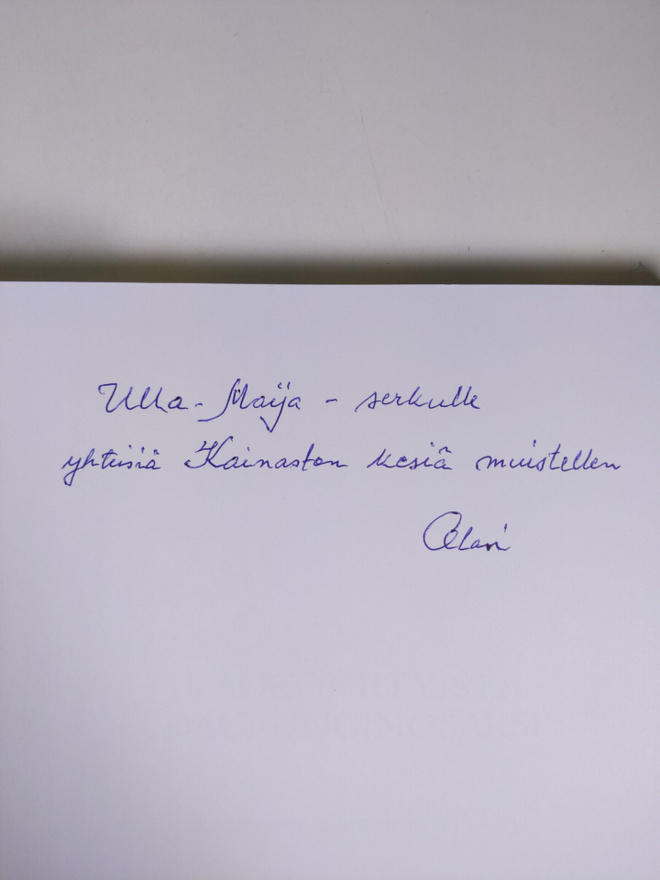 Ulla-Maija - serkulle
yhteisiä Kainaston kesiä muistellen
Olavi